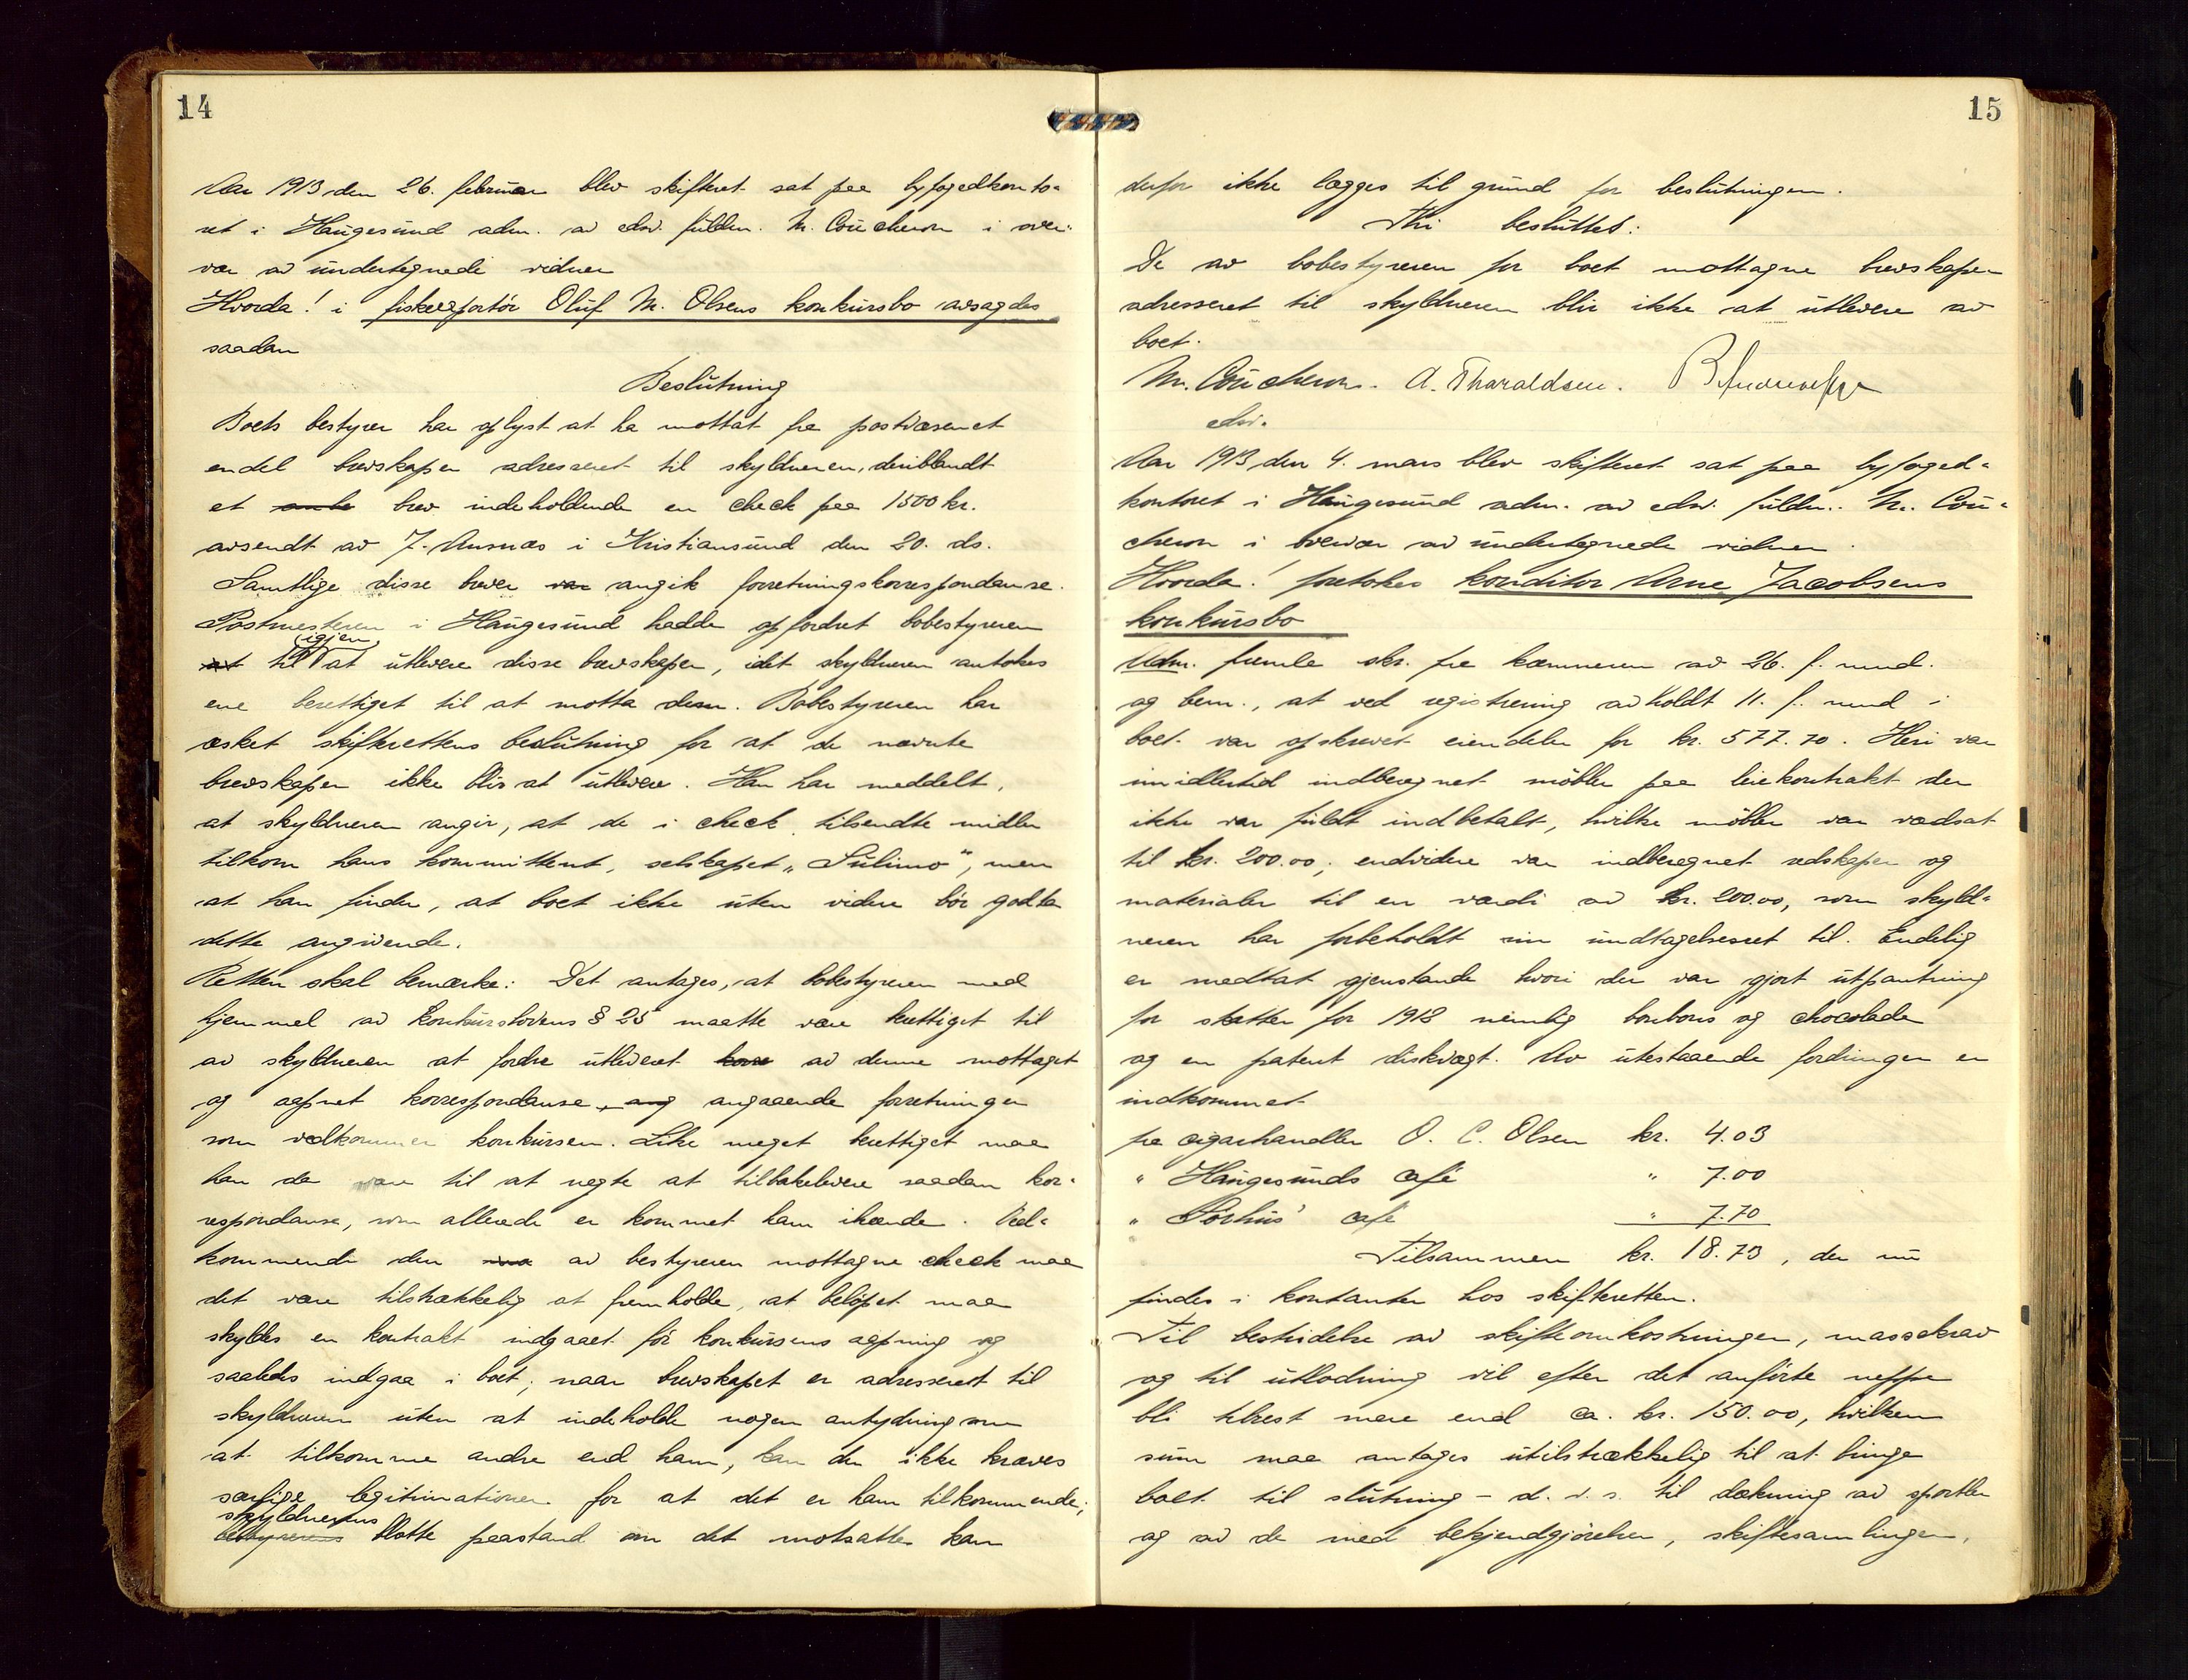 14
Aar 1913 den 26. februar blev skifteret sat paa byfogedkonto=
ret i Haugesund adm. av edsv. fuldm. M. Coucheron i over=
vær av undertegnede vidner
Hvorda! i fiskeexportör Oluf M. Olsens konkursbo avsagdes
saadan
Beslutning
Boets bestyrer har oplyst at ha mottat fra postvæsenet
endel brevskaper adresseret til skyldneren, deriblandt
et brev indeholdende en check paa 1500 kr.
avsendt av J. Ausnæs i Kristiansund den 20. ds.
Samtlige disse brever var angik forretningskorrespondanse.
Postmesteren i Haugesund hadde opfordret bobestyreren
at til igjen at utlevere disse brevskaper, idet skyldneren antokes
ene berettiget til at motta dem. Bobestyreren har
æsket skifterettens beslutning for at de nævnte
brevskaper ikke blir at utlevere. Han har meddelt,
at skyldneren angir, at de i check tilsendte midler
tilkom hans kommittent, selskapet „Sulimo“, men
at han finder, at boet ikke uten videre bör godta
dette angivende.
Retten skal bemærke: Det antages, at bobestyreren med
hjemmel av konkurslovens § 25 maatte være berettiget til
av skyldneren at fordre utleveret av denne mottaget
og aapnet korrespondanse, ang angaaende forretninger
som vedkommer konkursen. Like meget berettiget maa
han da være til at negte at tilbakelevere saadan kor=
respondanse, som allerede er kommet ham ihænde. Ved=
kommende den av bestyreren mottagne check maa
det være tilstrækkelig at fremholde, at belöpet maa
skyldes en kontrakt indgaaet för konkursens aapning og
saaledes indgaa i boet; naar brevskapet er adresseret til
skyldneren uten at indeholde nogen antydning om
at tilkomme andre end ham, kan der ikke kræves
særlige legitimationer for at det er ham tilkommende;
skyldnerens
bestyrerens blotte paastand om det motsatte kan
15
derfor ikke lægges til grund for beslutningen.
Thi besluttet:
De av bobestyreren for boet mottagne brevskaper
adresseret til skyldneren blir ikke at utlevere av
boet.
M. Coucheron. A. Tharaldsen.
edsv.
Aar 1913 den 4. mars blev skifteret sat paa byfoged=
kontoret i Haugesund adm. av edsv. fuldm. M. Cou=
cheron i overvær av undertegnede vidner.
Hvorda! foretokes konditor Arne Jacobsens
konkursbo
Adm. fremla skr. fra kæmneren av 26. f. mnd.
og bem., at ved registrering avholdt 11. f. mnd i
boet var opskrevet eiendeler for kr. 577.70. Heri var
imidlertid indberegnet möbler paa leiekontrakt der
ikke var fuldt indbetalt, hvilke möbler var værdsat
til kr. 200.00; endvidere var indberegnet redskaper og
materialer til en værdi av kr. 200.00, som skyld=
neren har forbeholdt sin undtagelsesret til. Endelig
er medtat gjenstande hvori der var gjort utpantning
for skatter for 1912 nemlig bonbons og chocolade
og en patent diskvægt. Av utestaaende fordringer er
indkommet
fra cigarhandler O. C. Olsen kr. 4.03
" Haugesunds café " 7.00
" Sörhus' café " 7.70
Tilsammen kr. 18.73, der nu
findes i kontanter hos skifteretten.
Til bestridelse av skifteomkostninger, massekrav
og til utlodning vil efter det anförte neppe
bli tilrest mere end ca. kr. 150.00, hvilken
sum maa antages utilstrækkelig til at bringe
boet til slutning - d. v. s. til dækning av sportler
og av de med bekjendtgjörelser, skiftesamlinger,